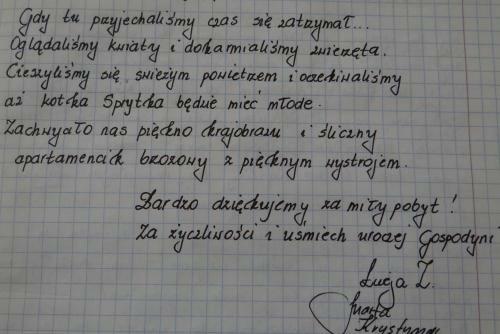 Gdy tu przyjechaliśmy czas się zatrzymał...
Oglądaliśmy kwiaty i dokarmialiśmy zwierzęta.
Cieszyliśmy się świeżym powietrzem i oczekiwaliśmy
aż kotka Sprytka będzie mieć młode.
Zachwyało nas piękno krajobrazu i śliczny
apartamencik brzozowy z pięknym wystrojem.
Bardzo dziękujemy za miły pobyt!
Za życzliwości i uśmiech uroczej Gospodyni
Łucja Z.